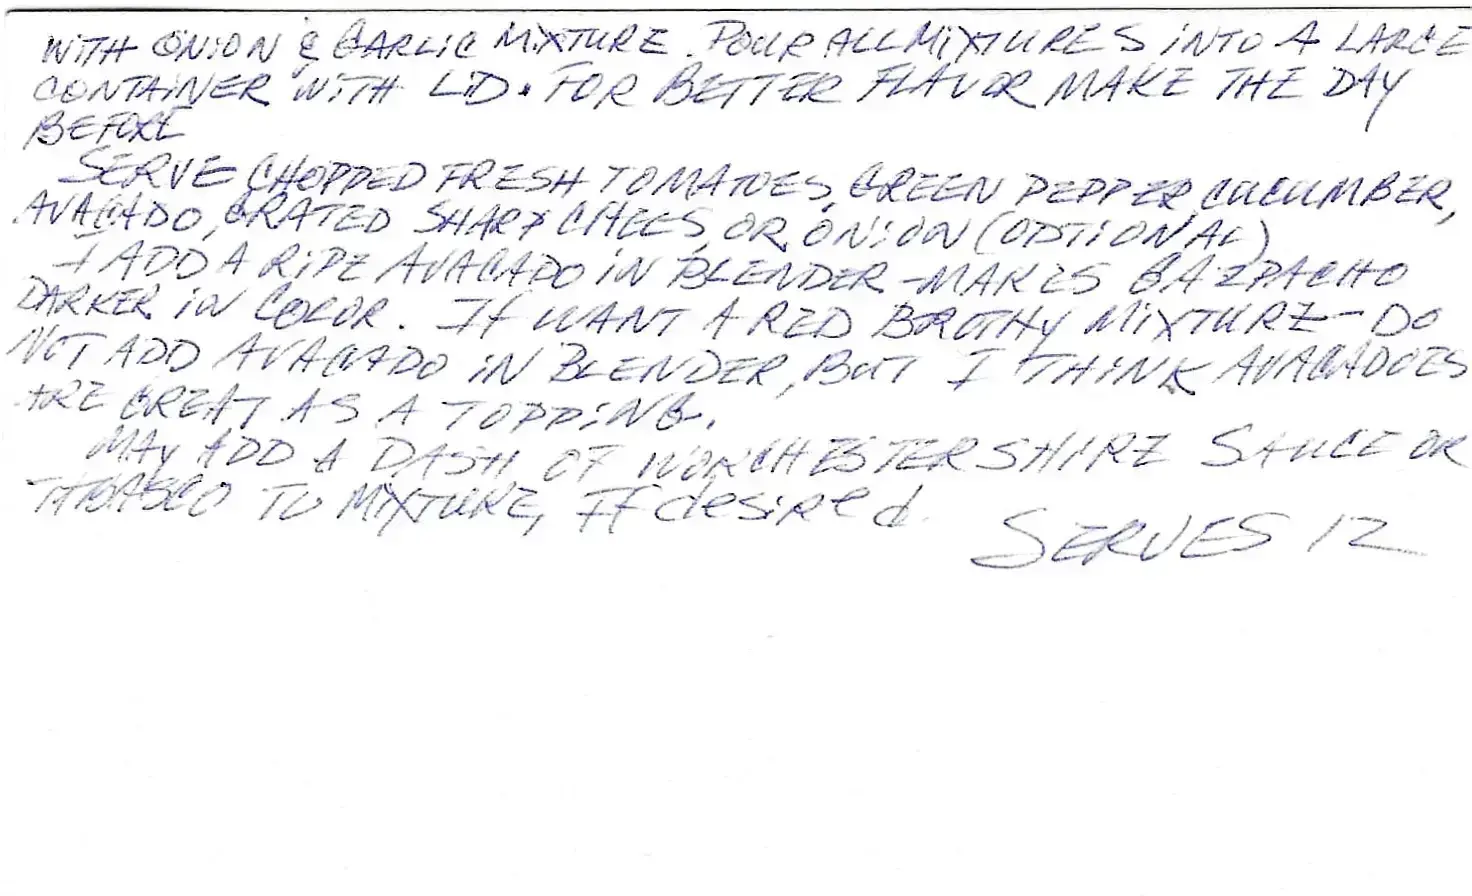 WITH ONION & GARLIC MIXTURE. POUR ALL MIXTURES INTO A LARGE
CONTAINER WITH LID. FOR BETTER FLAVOR MAKE THE DAY
BEFORE
SERVE CHOPPED FRESH TOMATOES, GREEN PEPPER, CUCUMBER,
AVACADO, GRATED SHARP CHEES, OR ONION (OPTIONAL)
I ADD A RIPE AVACADO IN BLENDER - MAKES GAZPACHO
DARKER IN COLOR. If WANT A RED BROTHY MIXTURE - DO
NOT ADD AVACADO IN BLENDER, BUT I THINK AVACADOES
ARE GREAT AS A TOPPING.
MAY ADD A DASH OF WORCHESTERSHIRE SAUCE OR
TABASCO TO MIXTURE, If desired.
SERVES 12